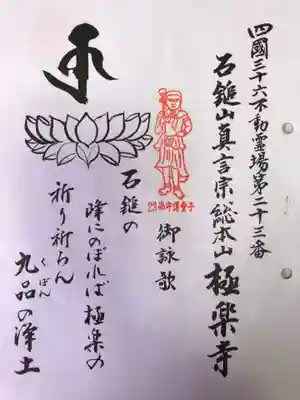 四國三十六不動霊場第二十三番
石鎚山真言宗総本山 極楽寺
御詠歌
石鎚の
峰にのぼれば極楽の
祈り祈らん
九品の浄土
くぼん